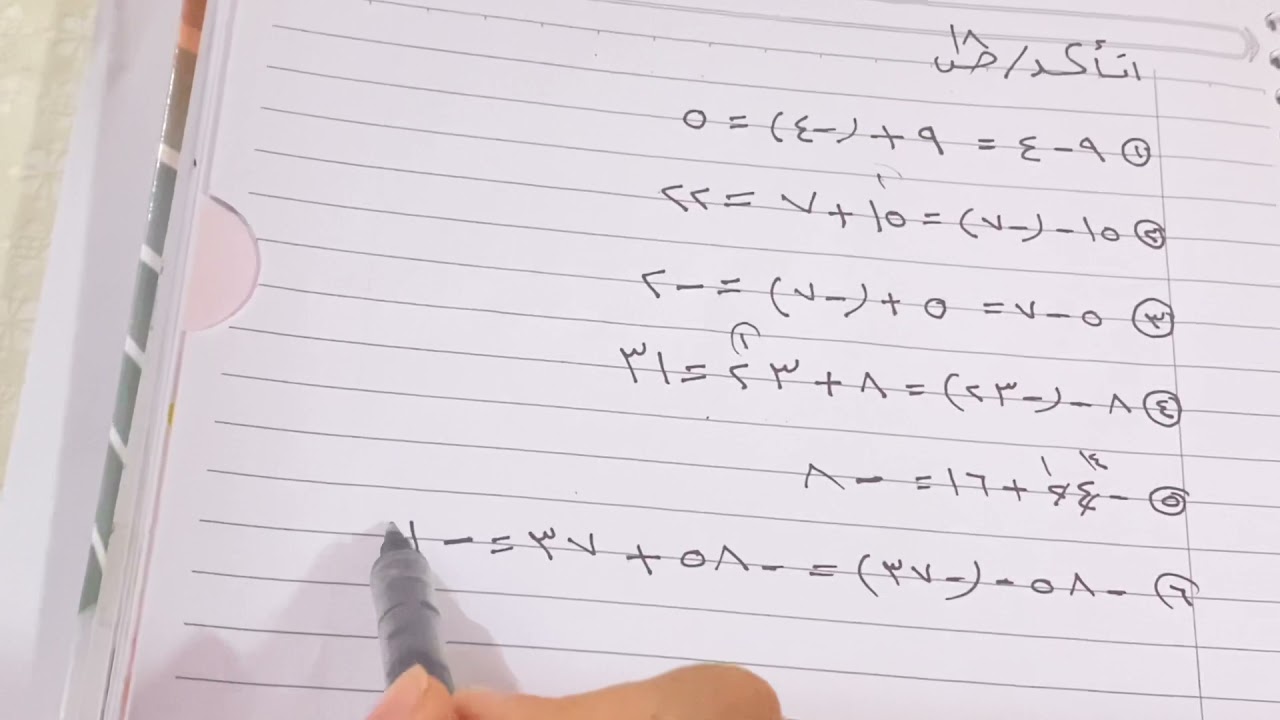 اتأكد/ص ١٨
① ٩ - ٤ = ٩ + (-٤) = ٥
② ١٥ - (-٧) = ١٥ + ٧ = ٢٢
③ ٥ - ٧ = ٥ + (-٧) = -٢
④ ٨ - (-٢٣) = ٨ + ٢٣ = ٣١
⑤ -٢٤ + ١٦ = -٨
⑥ -٥٨ - (-٣٧) = -٥٨ + ٣٧ = -١